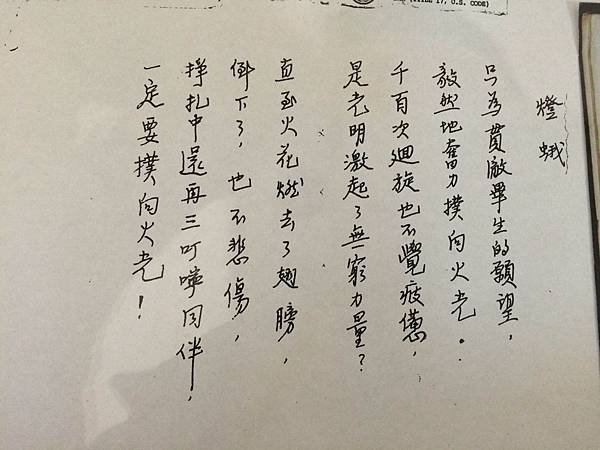 (TITLE 17, U.S. CODE)
燈蛾
只為貫徹畢生的願望，
毅然地奮力撲向火光．
千百次廻旋也不覺疲憊，
是光明激起了無窮力量？
直至火花燃去了翅膀，
倒下了，也不悲傷，
掙扎中還再三叮嚀同伴，
一定要撲向火光！